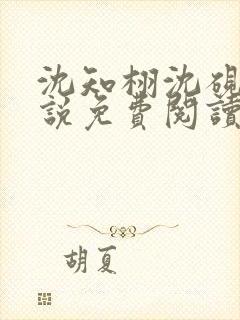 沈知栩沈硯
說免費閱讀
胡夏